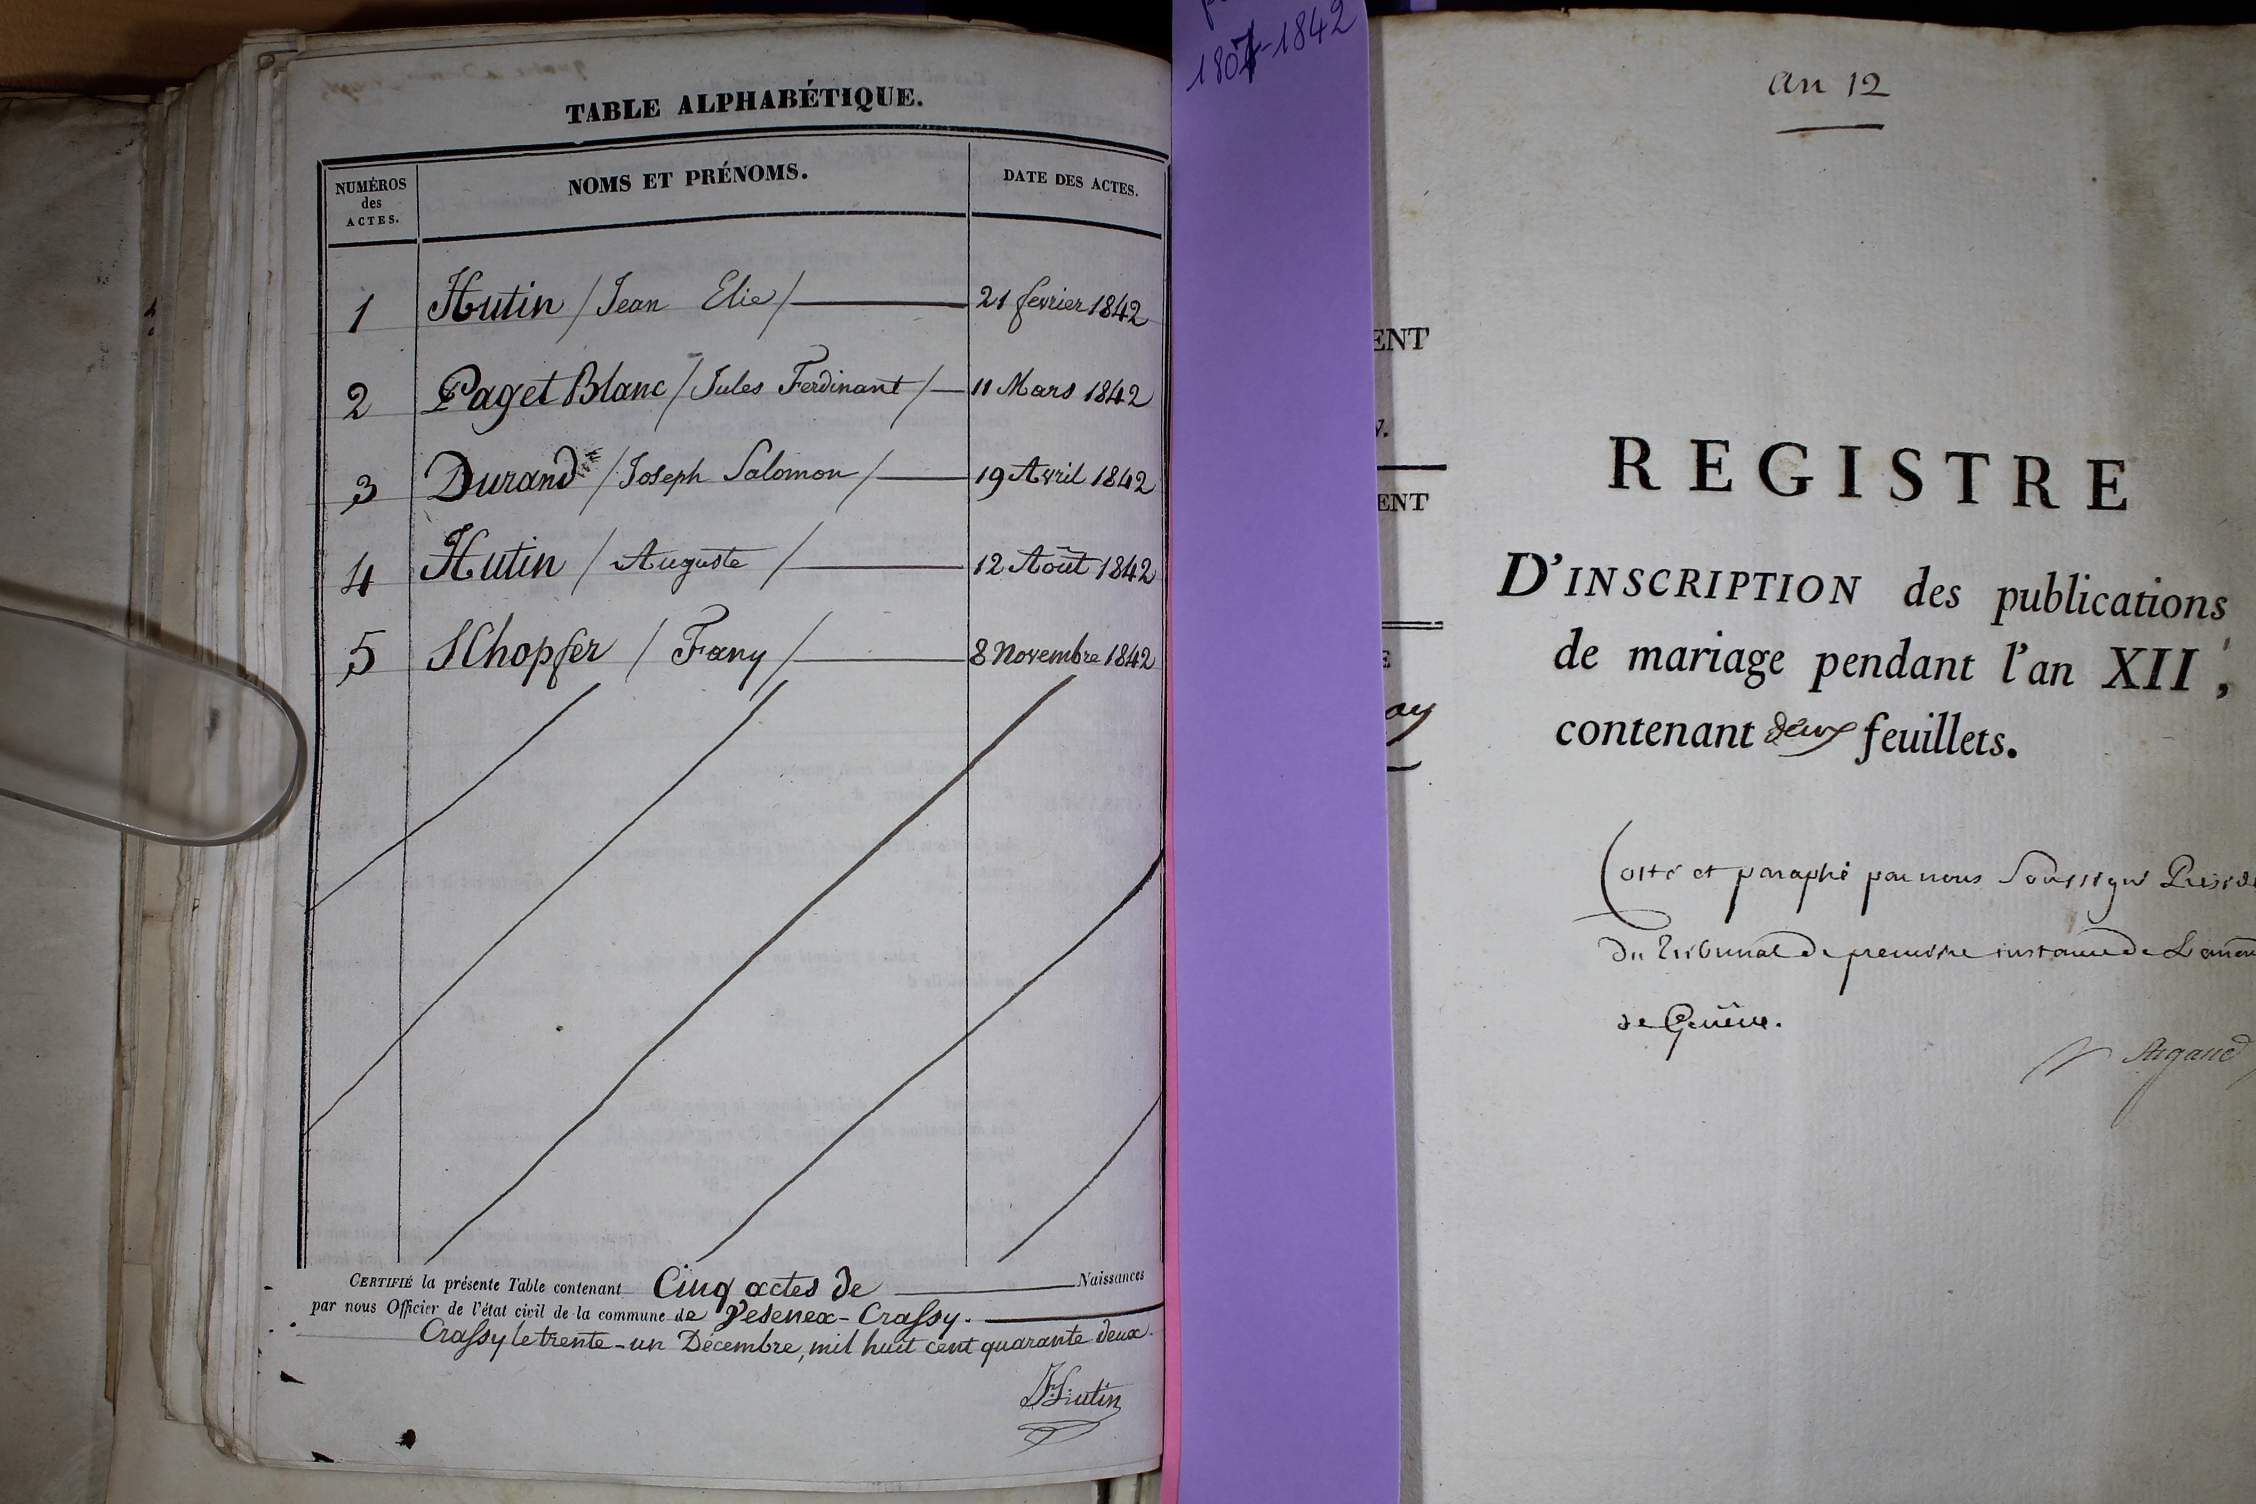 TABLE ALPHABÉTIQUE.
NUMÉROS des ACTES. NOMS ET PRÉNOMS. DATE DES ACTES.
1 Hutin / Jean Elie / 21 fevrier 1842
2 Paget Blanc / Jules Ferdinant / 11 Mars 1842
3 Durand / Joseph Salomon / 19 Avril 1842
4 Hutin / Auguste / 12 Août 1842
5 SChopfer / Fany / 8 Novembre 1842
CERTIFIÉ la présente Table contenant Cinq actes de Naissances
par nous Officier de l'état civil de la commune de Vesenex-Crassy.
Crassy le trente-un Décembre, mil huit cent quarante deux.
Hutin
1807-1842
ENT
V.
ENT
E
ay
an 12
REGISTRE
D'INSCRIPTION des publications
de mariage pendant l'an XII,
contenant deux feuillets.
Cotté et paraphé par nous Soussigné Preside
du Tribunal de premiere instance de Leman
de Genêve.
Argand